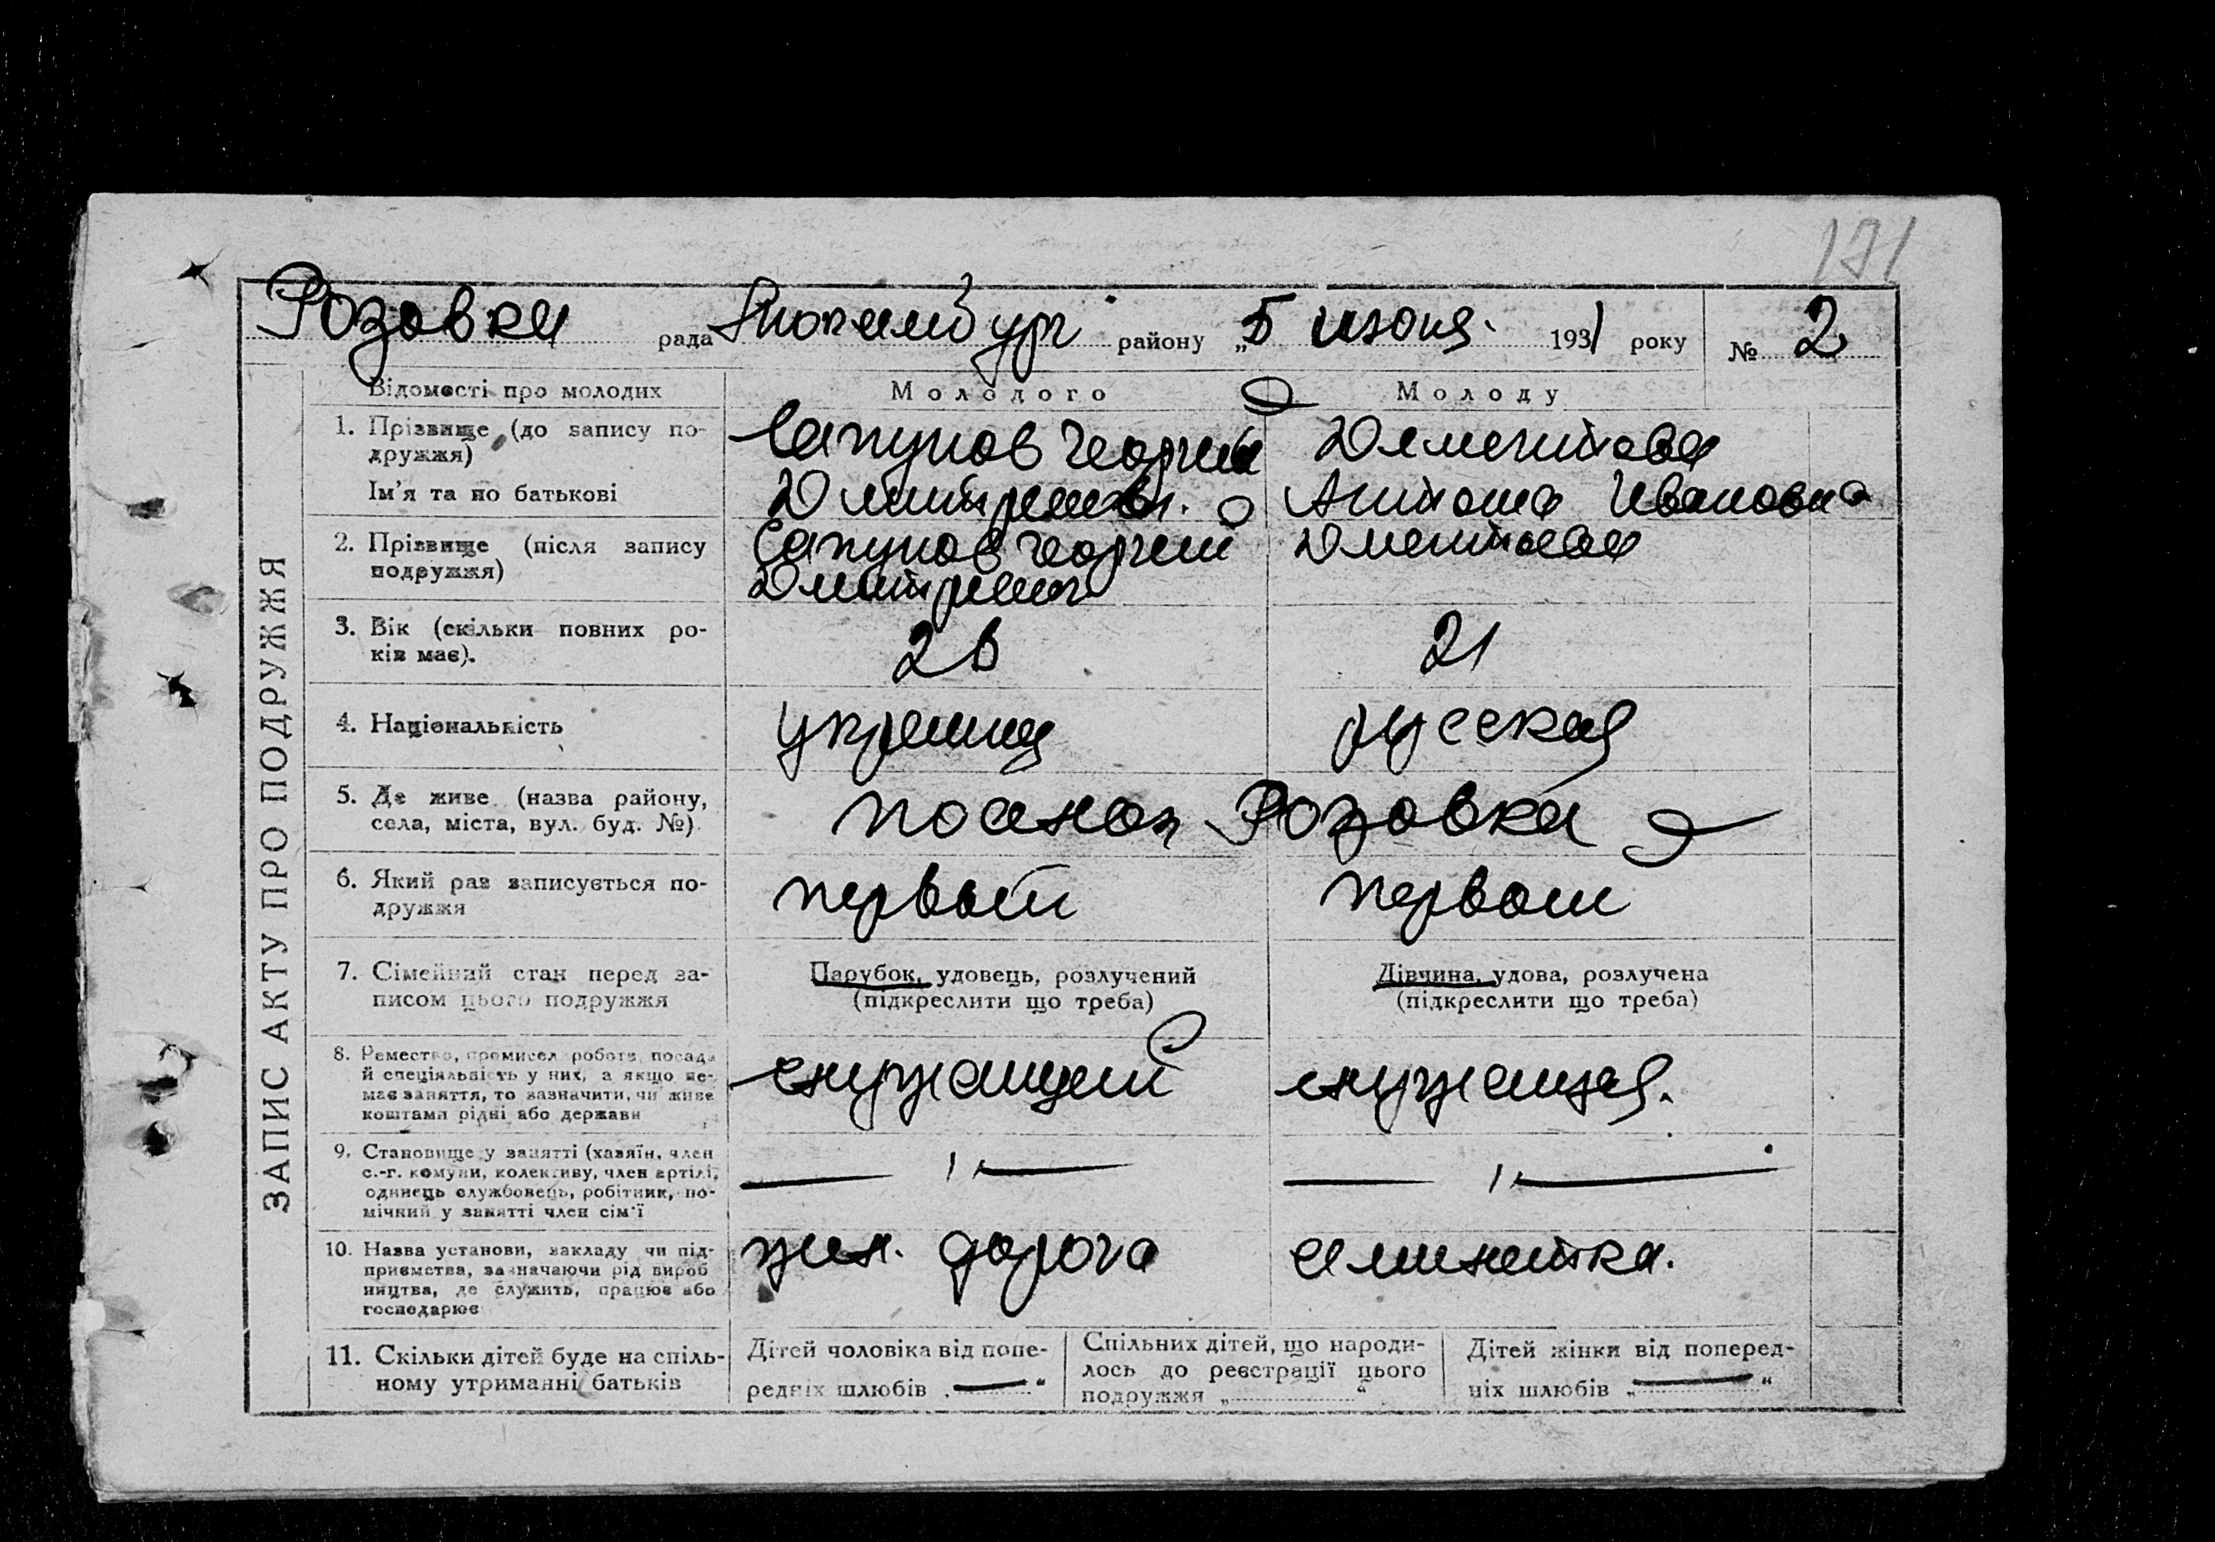 171
Розовка рада Люксембург району „5 июня 1931 року № 2
ЗАПИС АКТУ ПРО ПОДРУЖЖЯ
Відомості про молодих Молодого Молоду
1. Прізвище (до запису подружжя) Сапунов Георгий
Ім'я та по батькові Антона Ивановна
2. Прізвище (після запису Сапунов Георгий
подружжя)
3. Вік (скільки повних ро- 26 21
ків має).
4. Національність украинец русская
5. Де живе (назва району, Розовка
села, міста, вул. буд. №)
6. Який раз записується по- первый первый
дружжя
7. Сімейний стан перед за- Парубок, удовець, розлучений Дівчина, удова, розлучена
писом цього подружжя (підкреслити що треба) (підкреслити що треба)
8. Ремество, промисел робота, посада служащий служащая.
й спеціяльність у них, а якщо не-
має заняття, то зазначити, чи живе
коштами рідні або держави
9. Становище у занятті (хазяїн, член — " — — " —
с.-г. комуни, колективу, член артілі,
одинець службовець, робітник, по-
мічний у занятті член сім'ї
10. Назва установи, закладу чи під- жел. дорога
приємства, зазначаючи рід вироб
ництва, де служить, працює або
господарює
11. Скільки дітей буде на спіль- Дітей чоловіка від попе- Спільних дітей, що народи- Дітей жінки від поперед-
ному утриманні батьків редніх шлюбів „—“ лось до реєстрації цього ніх шлюбів „—“
подружжя „ “